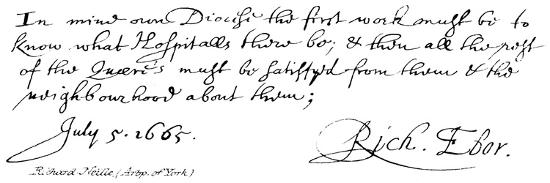 In mine own Diocise the first work must be to
know what Hospitalls there be; & then all the rest
of the Queere's must be satisfyd from them & the
neighbourhood about them;
July 5. 1665.
Rich. Ebor.
Richard Neille (Arbp. of York)